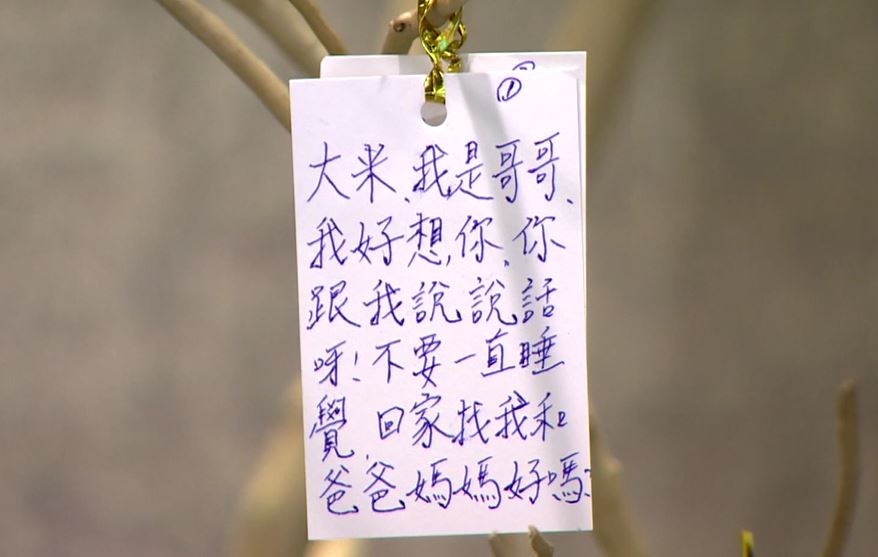 ①
大米、我是哥哥、
我好想,你、你
跟我說說話
呀!不要一直睡
覺,回家找我和
爸爸媽媽好嗎?